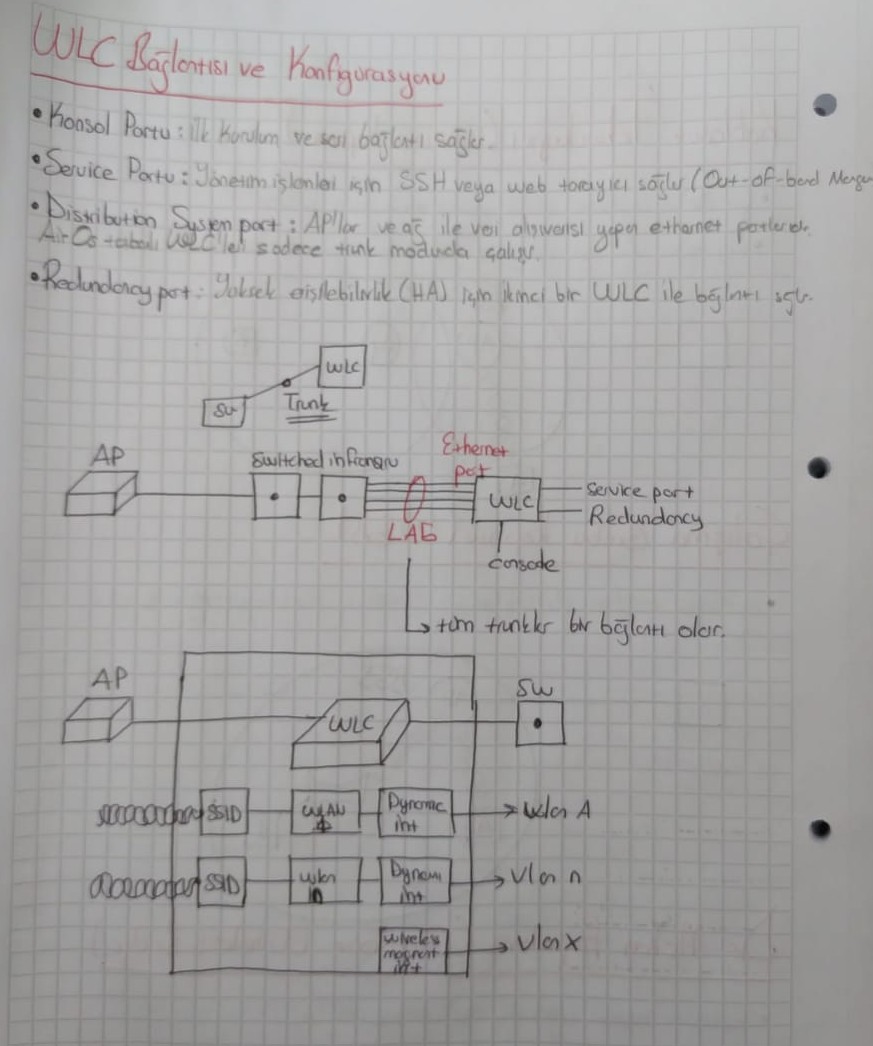 WLC Bağlantısı ve Konfigurasyonu
• Konsol Portu : ilk kurulum ve seri bağlantı sağlar.
• Service Portu : Yönetim işlemleri için SSH veya web tarayıcı sağlar (Out-of-band
• Distribution System port : AP'lar ve ağ ile veri alışverişi yapan ethernet portlarıdır.
AirOs tabanlı WLC'ler sadece trunk modunda çalışır.
• Redundancy port : Yüksek erişilebilirlik (HA) için ikinci bir WLC ile bağlantı sağlar.
WLC
SW
Trunk
AP
Switched
Ethernet
port
WLC
Service port
Redundancy
LAG
console
→ tüm trunklar bir bağlantı olur.
AP
WLC
SW
SSID
WLAN
Dynamic
int
→ Vlan A
SSID
wlan
n
Dynami
int
→ Vlan n
wireless
int
→ Vlan X